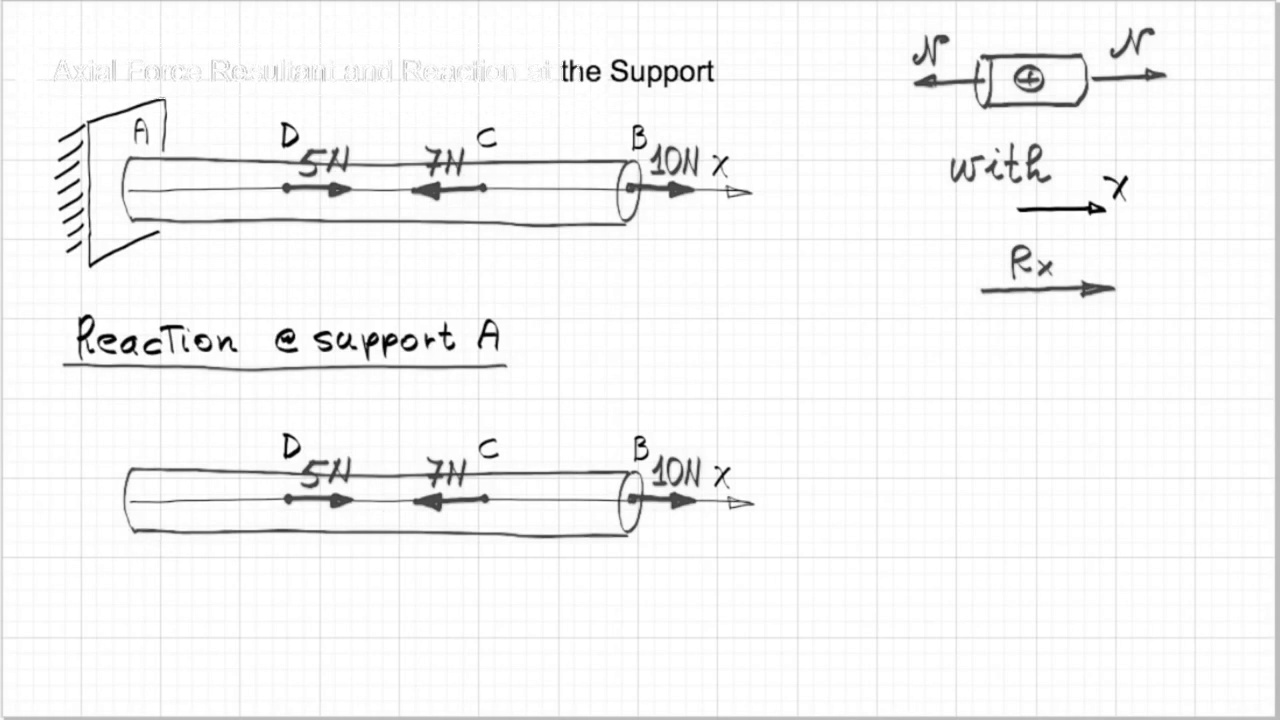 Axial Force Resultant and Reaction at the Support
N N
A D 5N 7N C B 10N X
with
X
Rx
Reaction @ support A
D 5N 7N C B 10N X